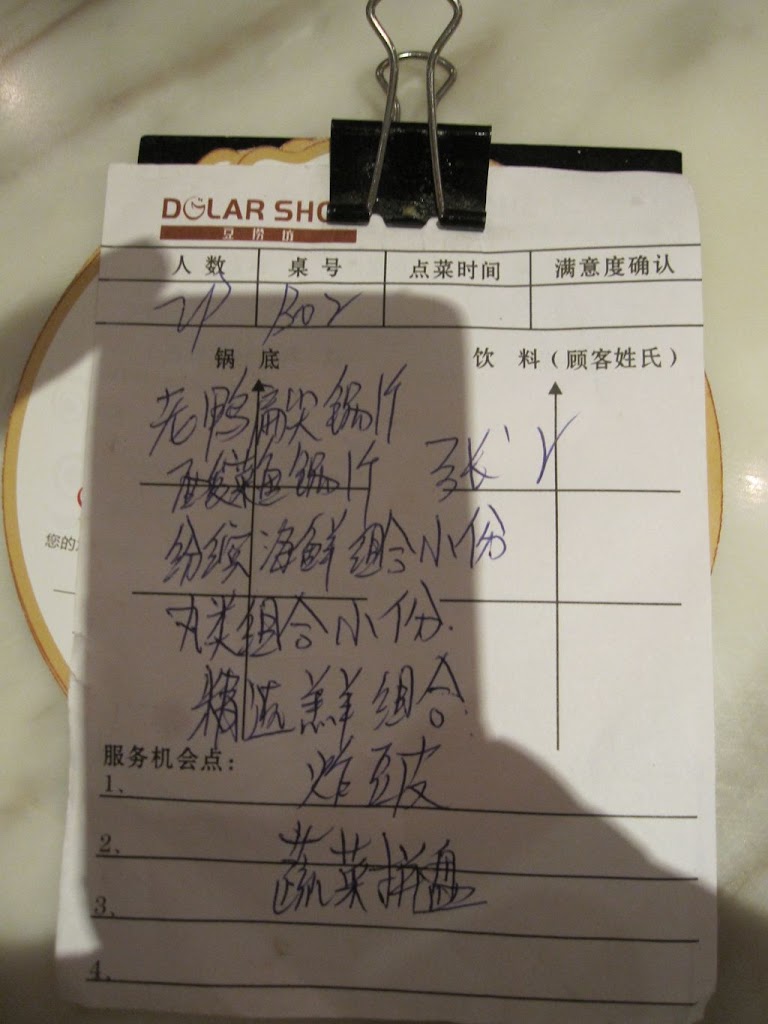 DOLAR SHO
豆捞坊
人数 桌号 点菜时间 满意度确认
2P B02
锅底 饮料（顾客姓氏）
老鸭扁尖锅1个
酸菜鱼锅1个 张 2
缤纷海鲜组合小份
丸类组合小份.
精选羔羊组合
服务机会点：
炸豆皮
1、
2、
蔬菜拼盘
3、
4、
您的